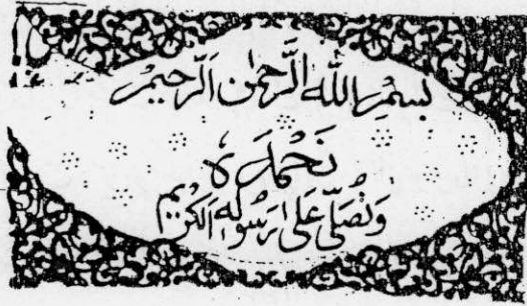 بسم الله الرحمن الرحيم
نحمده
ونصلى على رسوله الكريم